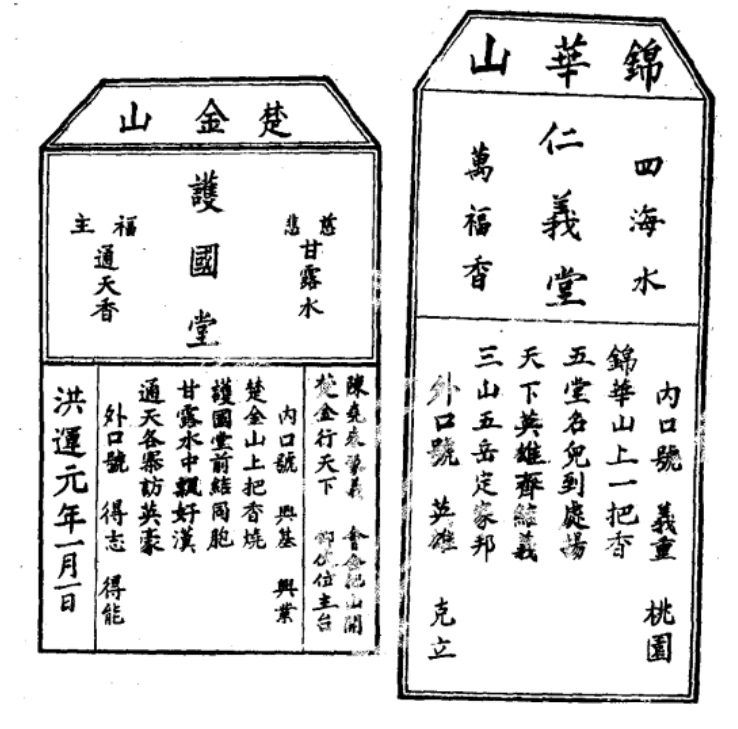 錦華山
四海水
仁義堂
萬福香
內口號 義重 桃園
錦華山上一把香
五堂名兒到處揚
天下英雄齊結義
三山五岳定家邦
外口號 英雄 克立
楚金山
慈悲
甘露水
護國堂
福主
通天香
陳
楚金行天下 位主台
內口號 興基 興業
楚金山上把香燒
護國堂前結同胞
甘露水中飄好漢
通天各寨訪英豪
外口號 得志 得能
洪運元年一月一日